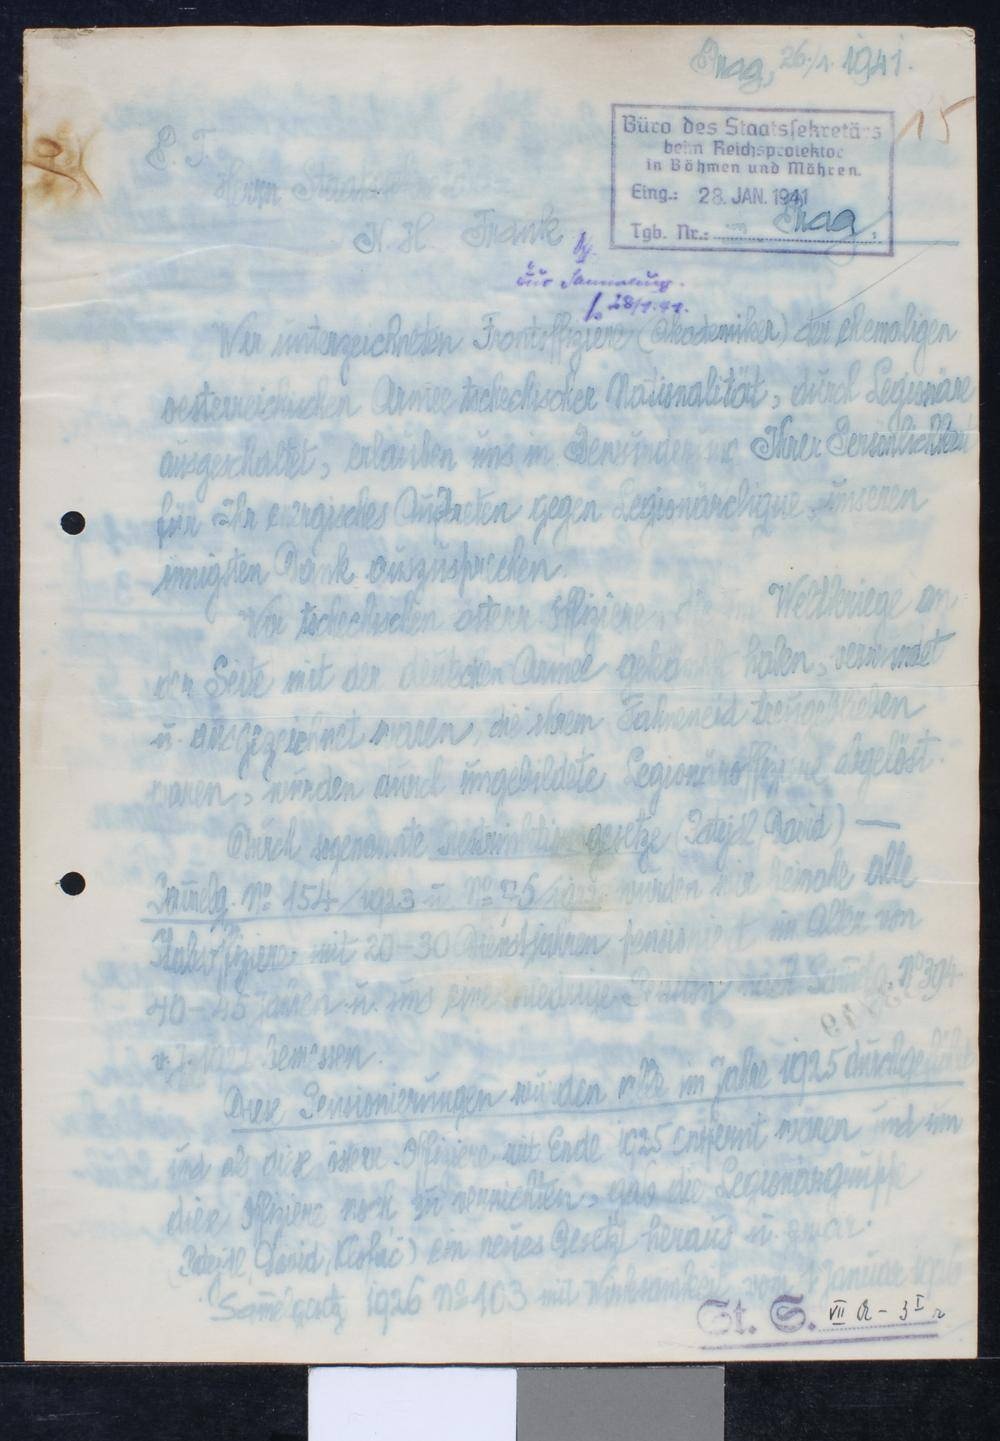 Prag, 26./1. 1941.
15
Büro des Staatssekretärs
beim Reichsprotektor
in Böhmen und Mähren.
Eing.: 28. JAN. 1941
Tgb. Nr.:
P. T.
Herrn
K. H. Frank
Prag,
zur Sammlung.
28/1.41.
Wir unterzeichneten Frontoffiziere (Akademiker) der ehemaligen
oesterreichischen Armee tschechischer Nationalität, durch Legionäre
ausgeschaltet, erlauben uns in Bewunderung Ihrer Persönlichkeit
für Ihr energisches Auftreten gegen Legionärclique, unseren
innigsten Dank auszusprechen.
Wir tschechischen österr. Offiziere, die im Weltkriege an
der Seite mit der deutschen Armee gekämpft haben, verwundet
u. ausgezeichnet waren, die ihrem Fahneneid treugeblieben
waren, wurden durch ungebildete Legionäroffiziere abgelöst.
Durch sogenannte Restriktionsgesetze (David) —
Samlg. No 154/1923 u. No 76/1922 wurden wir beinahe alle
Stabsoffiziere mit 20–30 Dienstjahren pensioniert im Alter von
40–45 Jahren u. uns eine niedrige Pension nach Samlg. No 394
v. J. 1922 bemessen.
Diese Pensionierungen wurden alle im Jahre 1925 durchgeführt
und als diese österr. Offiziere mit Ende 1925 entfernt waren und um
diese Offiziere noch zu vernichten, gab die Legionärgruppe
David, ein neues Gesetz heraus u. zwar:
1926 No 103 mit Wirksamkeit vom 1 Januar 1926
St. S. VII